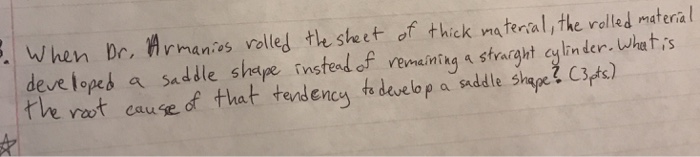 3. When Dr. Armanios rolled the sheet of thick material, the rolled material
developed a saddle shape instead of remaining a straight cylinder. What is
the root cause of that tendency to develop a saddle shape? (3pts.)